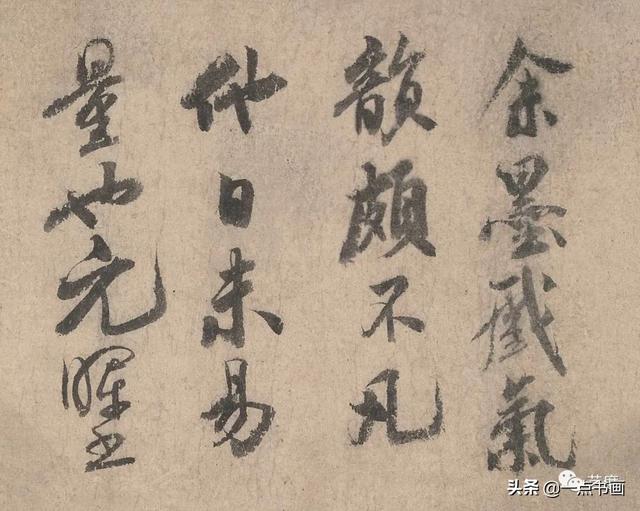 余墨戲氣
韻頗不凡
他日未易
量也元暉書
头条 @一点书画